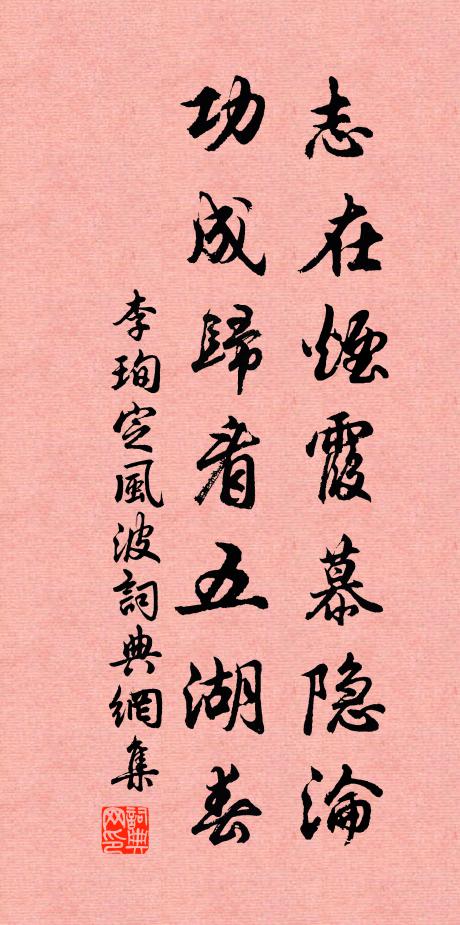 志在煙霞慕隐淪
功成歸看五湖春
李珣定風波詞典網集
詞典网印